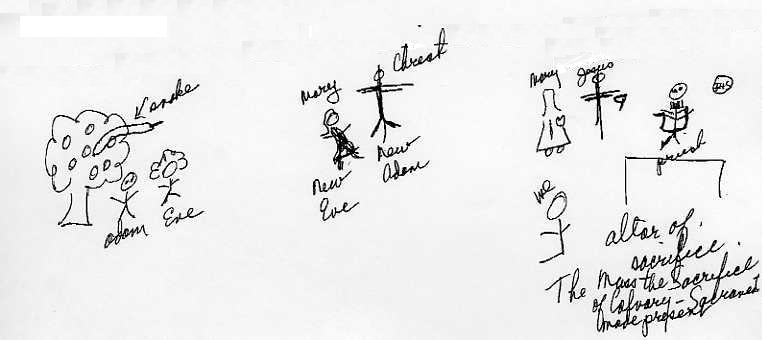 snake
Adam Eve
Mary Christ
New
Eve
New
Adam
Mary Jesus
IHS
priest
me
altar of
sacrifice.
The Mass the Sacrifice
of Calvary - Sacrament
made present